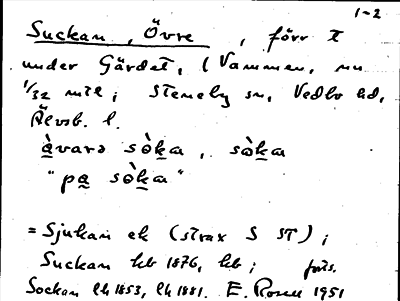 1-2
Suckan, Övre, förr t
under Gärdet, (Vammen, nu
1/32 mtl; Stenely sn, Vedbo hd,
Älvsb. l.
àvarə sòka, sòka
"pa sòka"
= Sjukan ek (strax S ST);
Suckan kb 1876, hb; forts.
Sockan lh 1853, lh 1881. E. Rosell 1951